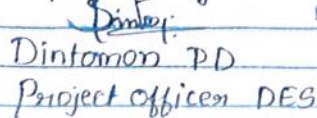 Dintomon PD
Project Officer DES